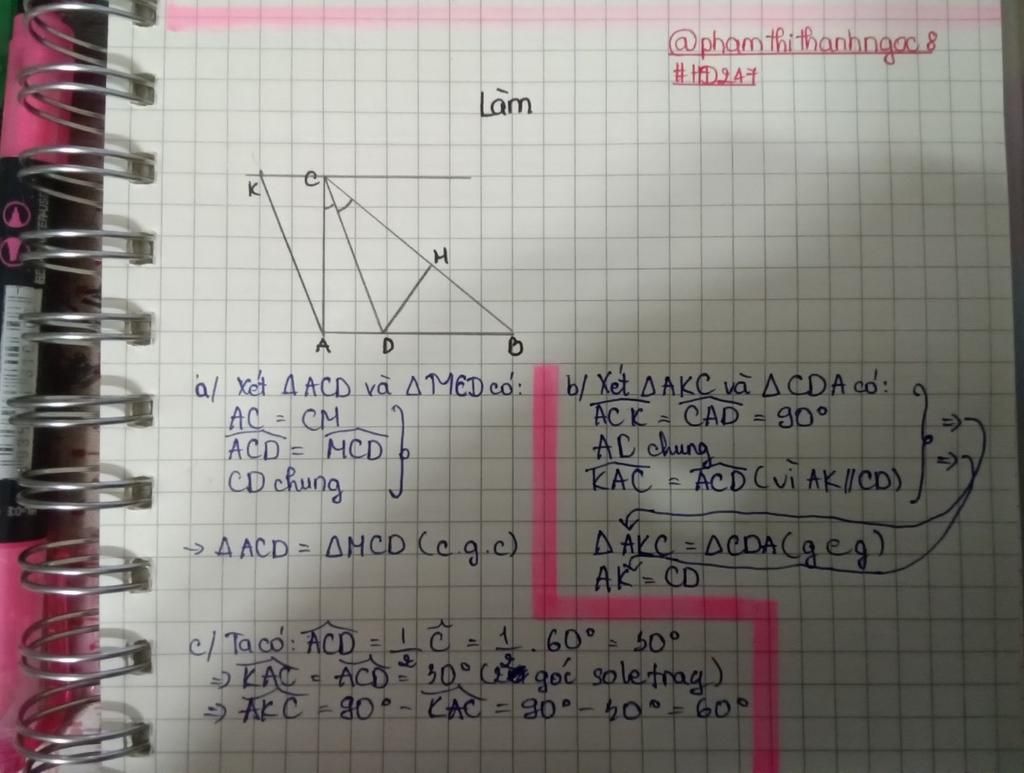 @phamthithanhngoc8
#HD247
Làm
K
C
M
A
D
B
a/ Xét ΔACD và ΔMCD có:
AC = CM
ACD = MCD
CD chung
→ ΔACD = ΔMCD (c.g.c)
b/ Xét ΔAKC và ΔCDA có:
ACK = CAD = 90°
AC chung
KAC = ACD (vì AK//CD)
⇒
⇒
ΔAKC = ΔCDA (g c g)
AK = CD
c/ Ta có: ACD = 1/2 Ĉ = 1/2 . 60° = 30°
⇒ KAC = ACD = 30° (2 góc sole trag)
⇒ AKC = 90° - KAC = 90° - 30° = 60°